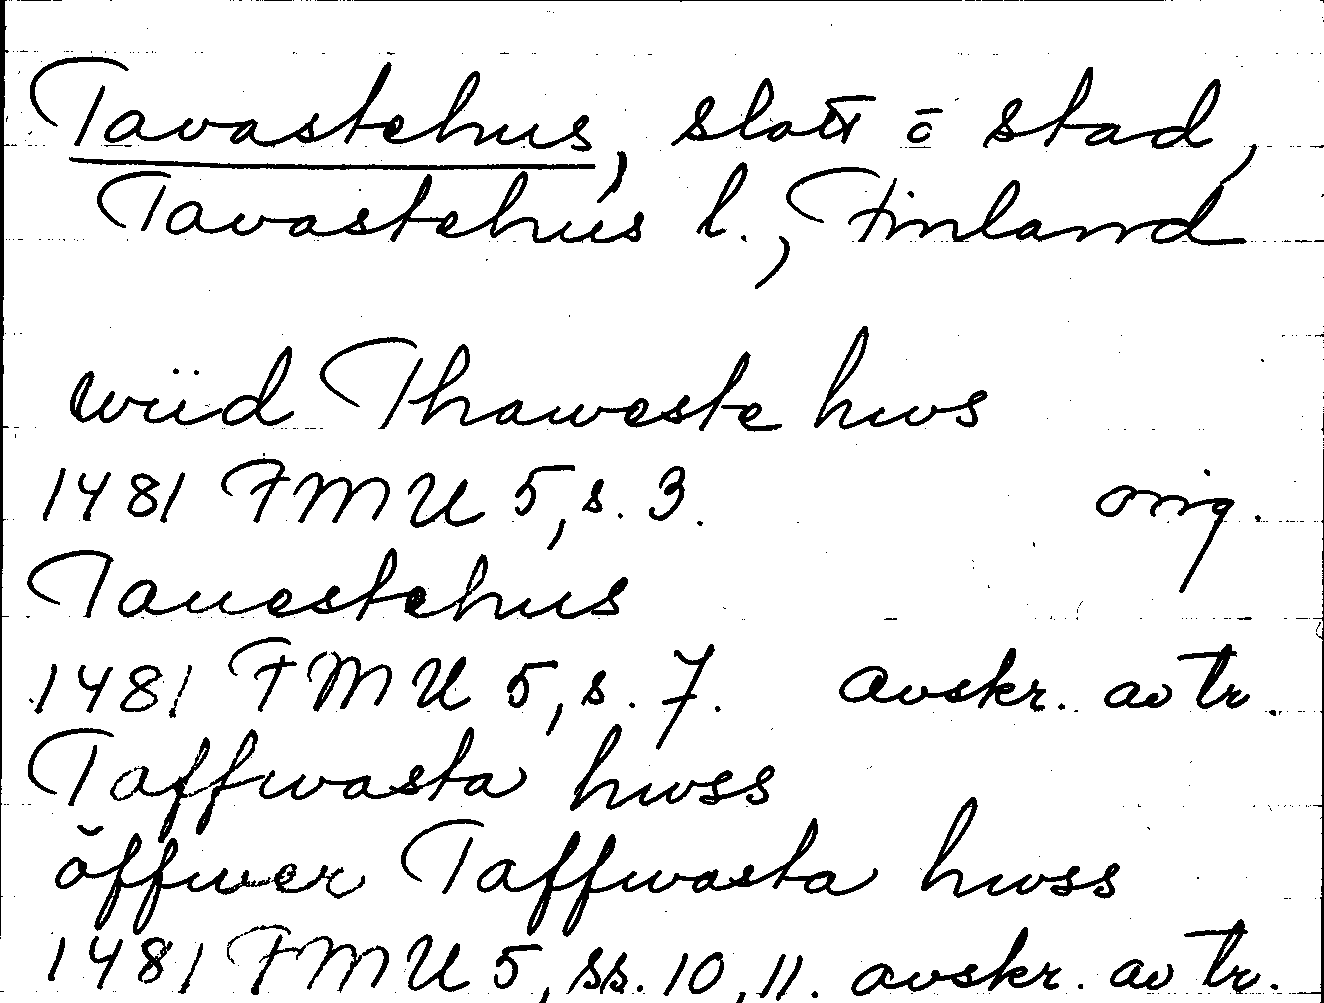 Tavastehus, slott ō stad,
Tavastehus l., Finland
wiid Thaweste hws
1481 FMU 5, s. 3. orig.
Tauestehus
1481 FMU 5, s. 7. avskr. av tr.
Taffwasta hwss
öffwer Taffwasta hwss
1481 FMU 5, ss. 10, 11. avskr. av tr.